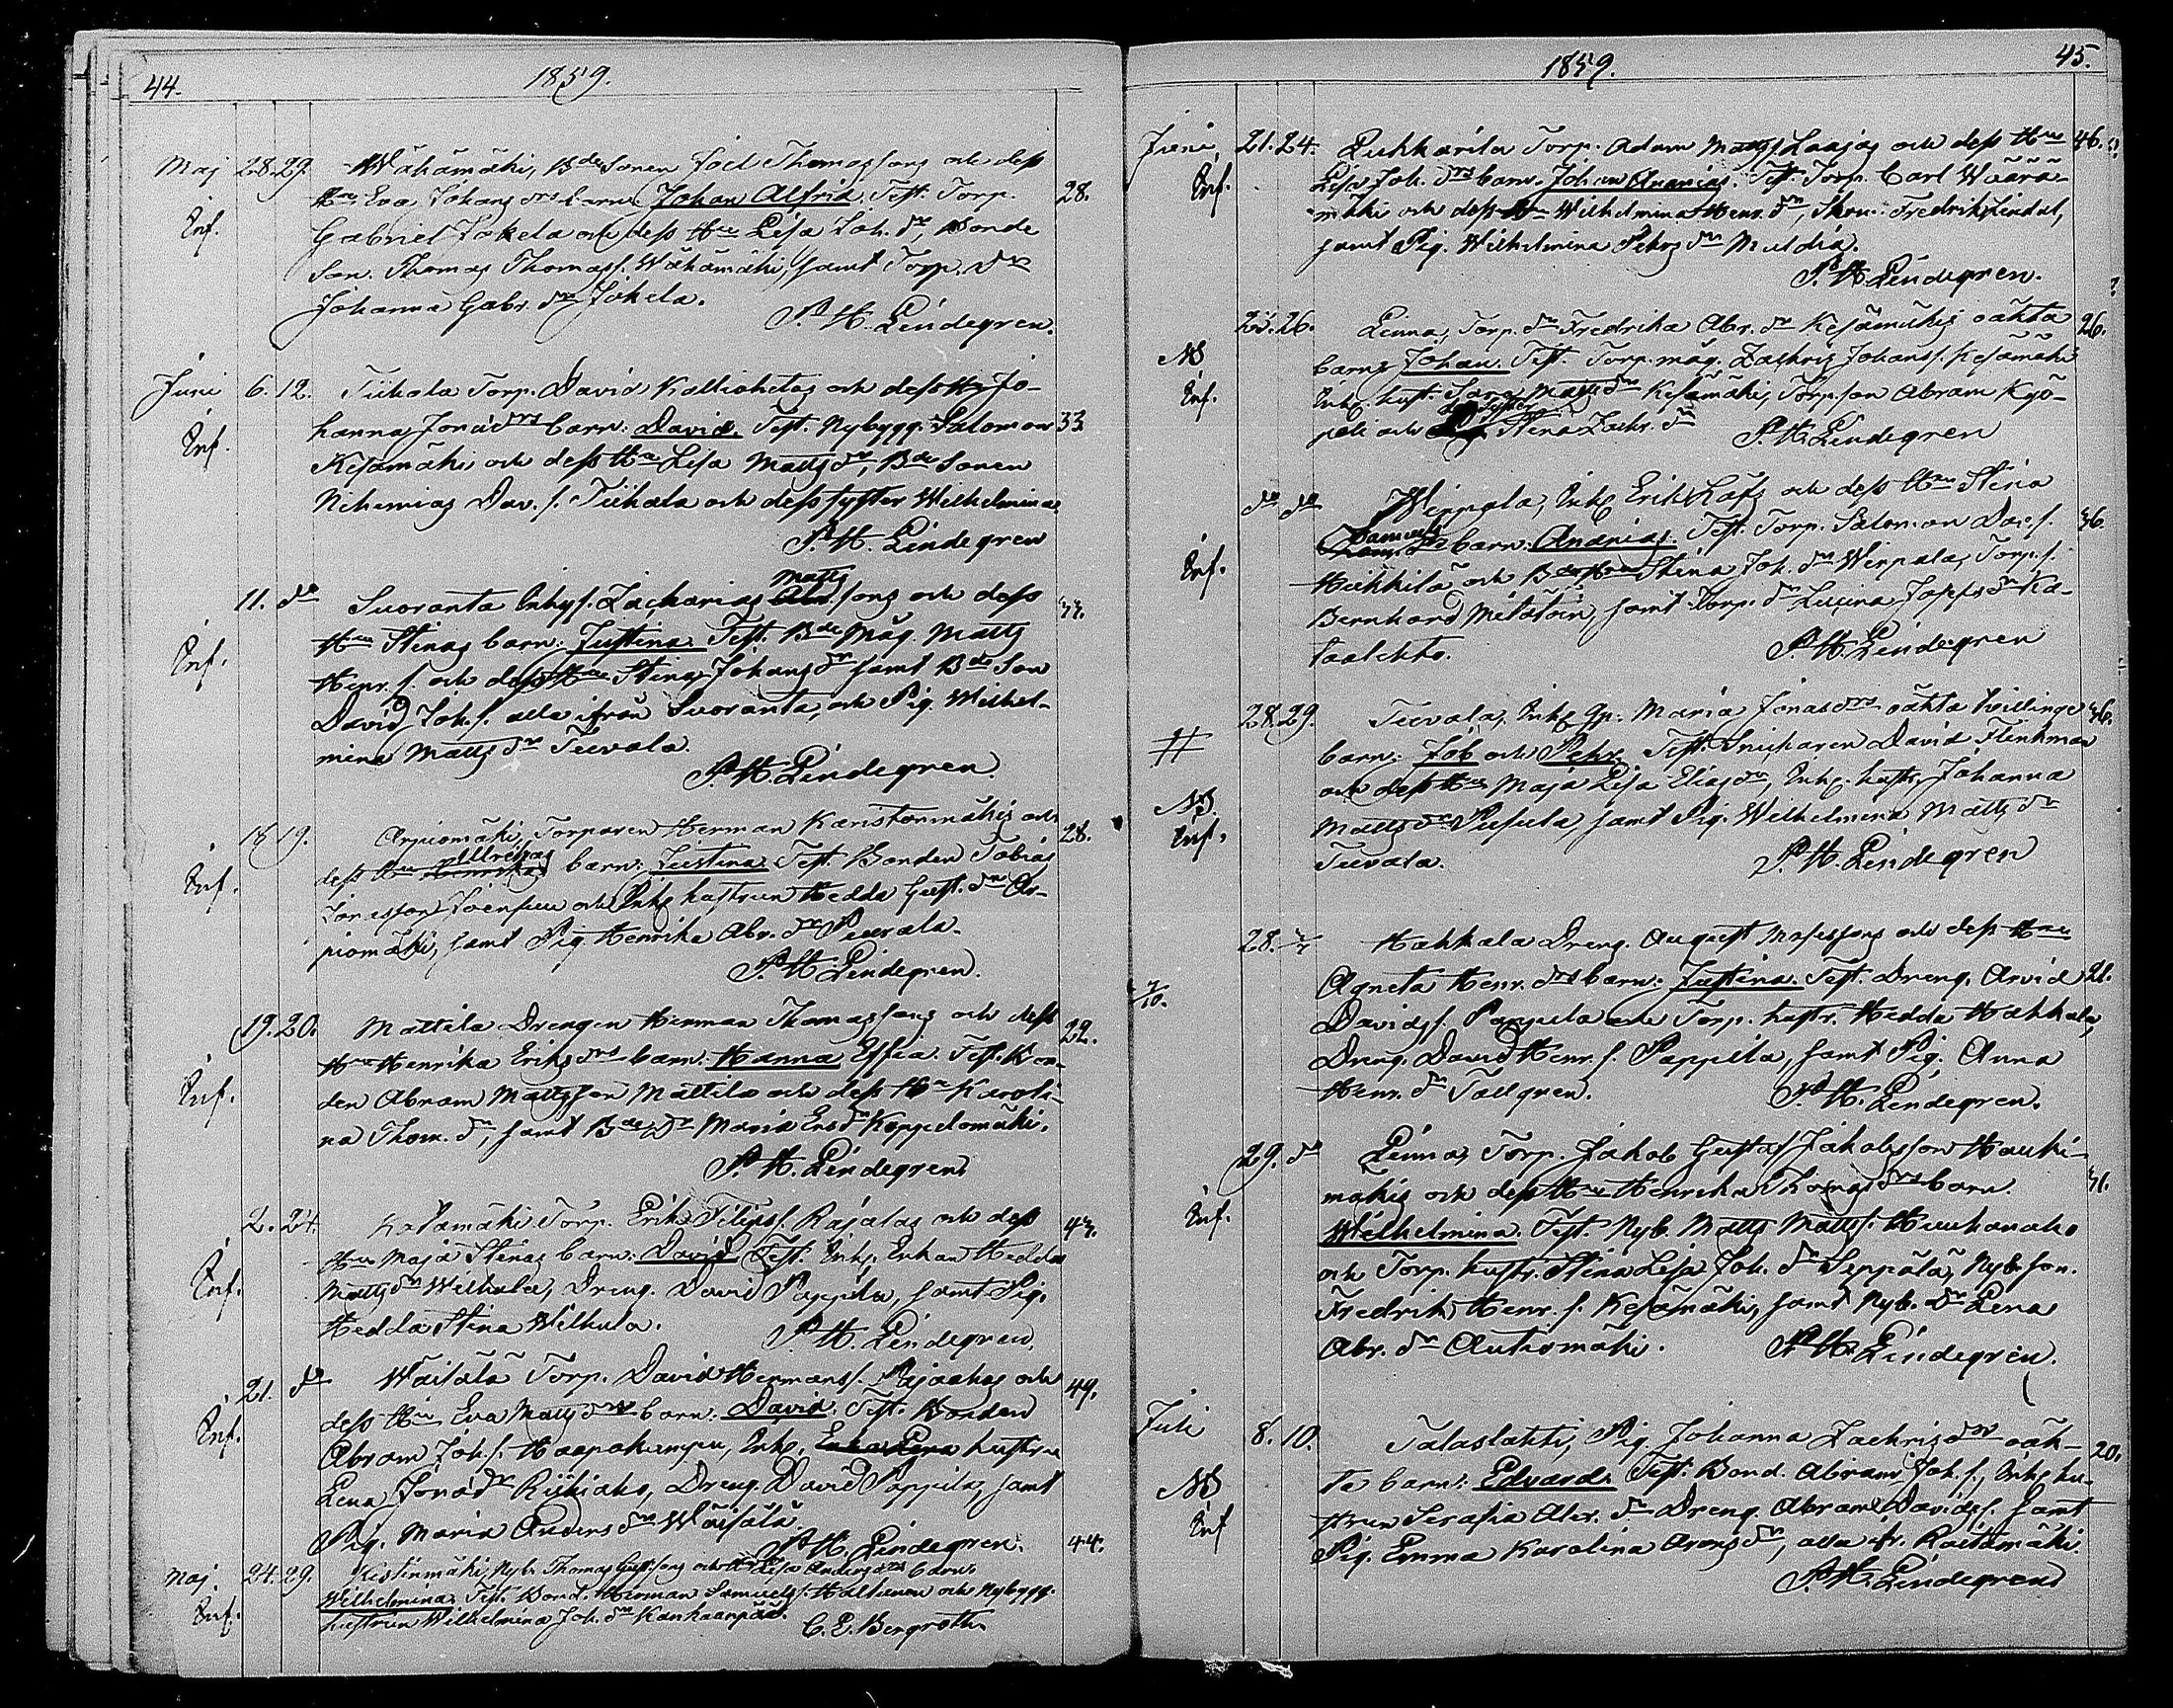 44. 1859.
Maj 28. 29. Wähämäki, Bdesonen Joel Thomassons och dess
Hru Eva Johans drs barn: Johan Alfrid. Test. Torp. 28.
Inf. Gabriel Jokela och dess Hru Lisa Joh. dr, Bonde
Son. Thomas Thomass. Wähämäki, samt Torp. dr
Johanna Gabr. dr Jokela.
P. H. Lindegren.
Juni 6. 12. Tiikala Torp. David Kalliohetas och dess H Jo-
hanna Jonæ drs barn: David. Test. Nybygg. Salomon 33
Inf. Kesämäki och dess Hru Lisa Matts dr, Bde Sonen
Nehemias Dav. s. Tiikala och dess syster Wilhelmina
P. H. Lindegren
11. do Suoranta Inhys. Zacharias Matts sons och dess 33.
Hru Stinas barn: Justina. Test. Bde Måg. Matts
Inf. Henr. s. och dess Hru Stina Johans dr samt Bde Son
David Joh. s. alla ifrån Suoranta, och Pig. Wilhel-
mina Matts dr Teevala.
P. H. Lindegren.
18 19. Arpiomäki, Torparen Herman Karistonmäkis och 28.
dess Hru Ulrikas barn: Justina. Test. Bonden Tobias
Inf. Jonasson Joensuu och Inh. hustrun Hedda Gust. dr Ar-
piomäki, samt Pig. Henrika Abr. dr Peurala.
P. H. Lindegren.
19. 20. Mattila Drengen Herman Thomassons och dess 22.
Hru Henrika Eriks drs barn: Hanna Effia. Test. Bon-
Inf. den Abram Mattsson Mattila och dess Hru Karoli-
na Thom. dr, samt Bde dr Maria Ers dr Koppelomäki.
P. H. Lindegren.
2. 24. Katamäki Torp. Erik Filipss. Rajalas och dess 43.
Hru Maja Stinas barn: David. Test. Inh. Enkan Hedda
Inf. Matts dr Wilhula, Dreng. David Pappila, samt Pig.
Hedda Stina Wilhula.
P. H. Lindegren.
21. do Wäisälä Torp. David Hermanss. Pajaahos och 49.
dess Hru Eva Matts drs barn: David. Test. Bonden
Inf. Abram Joh. s. Haapakumpu, Inh. Enkan Lena hustrun
Lena Jonæ dr Riihiaho, Dreng. David Pappila, samt
Pig. Maria Anders dr Wäisälä.
P. H. Lindegren.
Maj. 24. 29. Kistinmäki, Nyb. Thomas Gust. sons och Hru Lisa Anders drs barn: 44.
Inf. Wilhelmina. Test. Bond. Herman Samuels. Haltunen och Nybygg.
hustrun Wilhelmina Joh. dr Kanhaanpää.
C. E. Bergroth.
1859. 45.
Juni 21. 24. Puhkarila Torp. Adam Matts Laajas och dess Hru 46.
Inf. Lisa Joh. drs barn: Johan Ananias. Test. Torp. Carl Wäärä-
mäki och dess Hru Wilhelmina Henr. dr, Skru. Fredrik Lindal,
samt Pig. Wilhelmina Pehrs dr Muldia.
P. H. Lindegren.
25. 26. Linna, Torp. dr Fredrika Abr. dr Kesämäkis oäkta 26.
NB barn: Johan. Test. Torp. måg. Zachris Johanss. Kesämäki
Inf. Inh. hust. Sara Matts dr Kesämäki, Torp. son Abram Kyö-
peli och dess syster Stina Zachr. dr P. H. Lindegren
do do Wippala, Inh. Erik Löfs och dess Hru Stina
Samuels dr barn: Ananias. Test. Torp. Salomon Dav. s. 36.
Inf. Heikkilä och Stina Joh. dr Wirpala, Torp. s.
Bernhard Metätöin, samt Torp. dr Lucina Joseps dr Ka-
taalehto.
P. H. Lindegren
28. 29. Teevala, Inh. Qp. Maria Jonas drs oäkta tvillinge 36.
# barn: Job och Pehr. Test. Snickaren David Flinkman
och dess Hru Maja Lisa Elias dr, Inh. hustr. Johanna
NB. Inf. Matts dr Pusula, samt Pig. Wilhelmina Matts dr
Teevala.
P. H. Lindegren
28. Hakkala Dreng. August Mosessons och dess Hru
7/10. Agneta Henr. drs barn: Justina. Test. Dreng. Arvid 21.
Davidss. Pappila och Torp. hustr. Hedda Hakkala,
Dreng. David Henr. s. Pappila, samt Pig. Anna
Henr. dr Tallgren. P. H. Lindegren.
29. do Linna, Torp. Jakob Gustaf Jakobsson Hauki-
mäkis och dess Hru Henrika Thomas drs barn: 31.
Inf. Wilhelmina. Test. Nyb. Matts Mattss. Huuhanaho
och Torp. hustr. Stina Lisa Joh. dr Seppälä, Nyb. son.
Fredrik Henr. s. Kesämäki, samt Nyb. dr Lena
Abr. dr Autiomäki. P. H. Lindegren.
Juli 8. 10. Talaslahti, Pig. Johanna Zachris drs oäk-
ta barn: Edvard. Test. Bond. Abram Joh. s., Inh. hu- 20.
NB strun Serafia Alex. dr Dreng. Abram Davidss. samt
Inf Pig. Emma Karolina Arons dr, alla fr. Raitamäki.
P. H. Lindegren